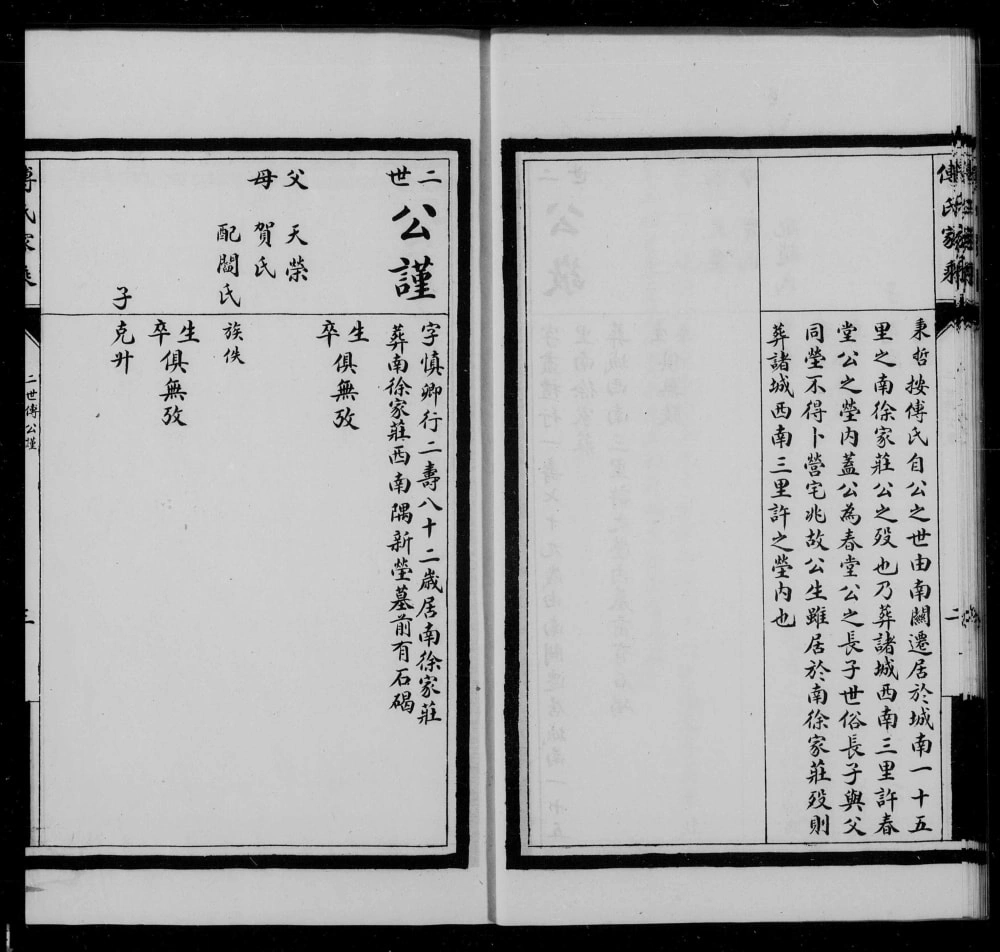 傅氏家乘
二
秉哲按傅氏自公之世由南關遷居於城南一十五
里之南徐家莊公之歿也乃葬諸城西南三里許春
堂公之塋內蓋公為春堂公之長子世俗長子與父
同塋不得卜營宅兆故公生雖居於南徐家莊歿則
葬諸城西南三里許之塋內也
二世
公謹
字慎卿行二壽八十二歲居南徐家莊
葬南徐家莊西南隅新塋墓前有石碣
生
卒
俱無攷
父 天榮
母 賀氏
配閻氏
族佚
生
卒
俱無攷
子
克升
二世傅公謹
三